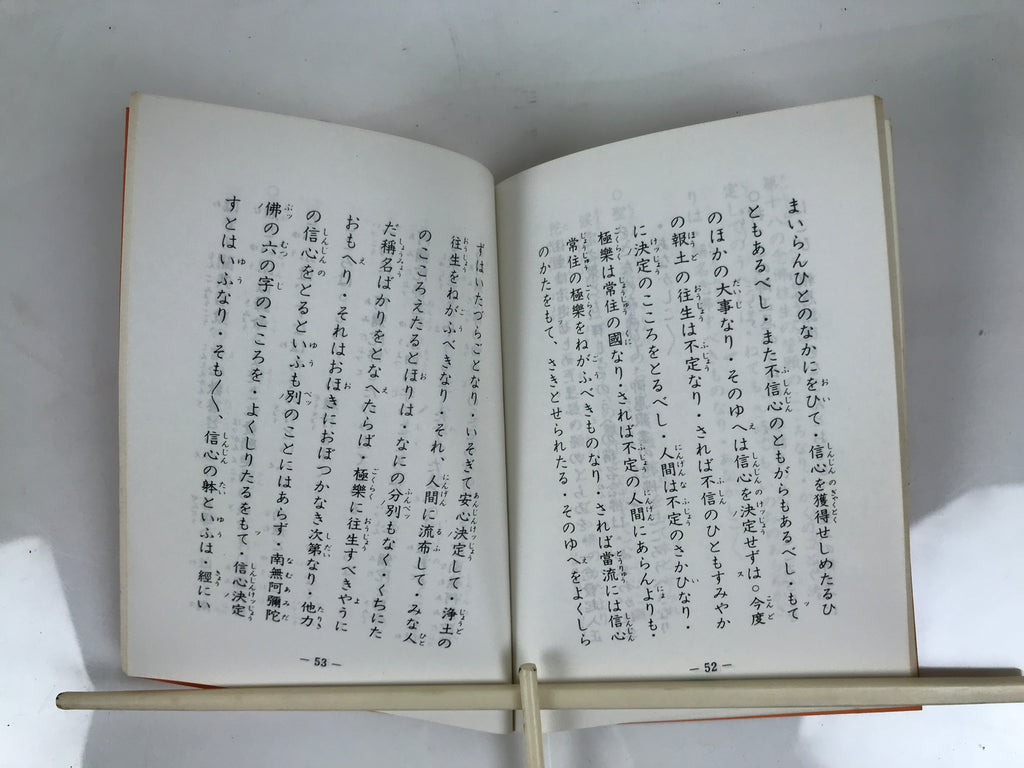 まいらんひとのなかにをひて・信心を獲得せしめたるひ
ともあるべし・また不信心のともがらもあるべし・もて
のほかの大事なり・そのゆへは信心を決定せずは○今度
の報土の往生は不定なり・されば不信のひともすみやか
に決定のこころをとるべし・人間は不定のさかひなり・
極樂は常住の國なり・されば不定の人間にあらんよりも・
常住の極樂をねがふべきものなり・されば當流には信心
のかたをもて、さきとせられたる・そのゆへをよくしら
― 52 ―
ずはいたづらことなり・いそぎて安心決定して・浄土の
往生をねがふべきなり・それ、人間に流布して・みな人
のこころえたるとほりは・なにの分別もなく・くちにた
だ稱名ばかりをとなへたらば・極樂に往生すべきやうに
おもへり・それはおほきにおぼつかなき次第なり・他力
の信心をとるといふも別のことにはあらず・南無阿彌陀
佛の六の字のこころを・よくしりたるをもて・信心決定
すとはいふなり・そも〳〵、信心の躰といふは・經にい
― 53 ―